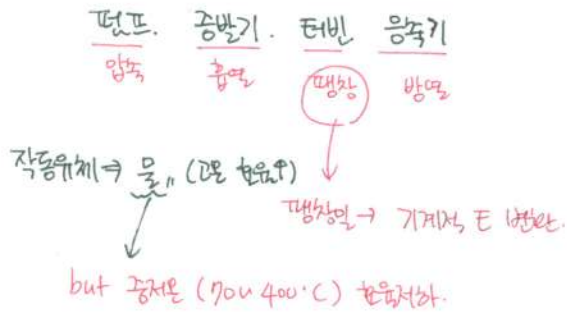 펌프. 증발기. 터빈 응축기
압축 흡열 팽창 방열
작동유체⇒ 물,, (고온 효율↑)
팽창일→ 기계적 E 변환.
but 중저온 (70~400°C) 효율저하.